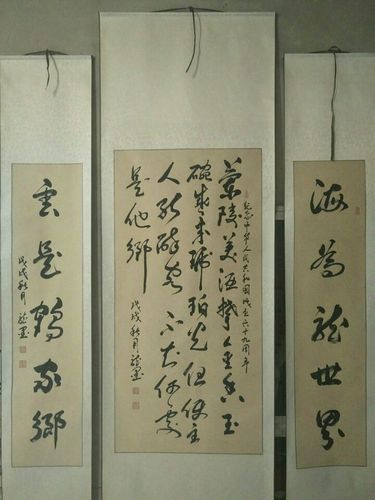 海為龍世界
紀念中華人民共和國成立六十九周年
蘭陵美酒鬱金香玉
碗盛來琥珀光但使主
人能醉客不知何處
是他鄉
戊戌秋月
雲是鶴家鄉
戊戌秋月